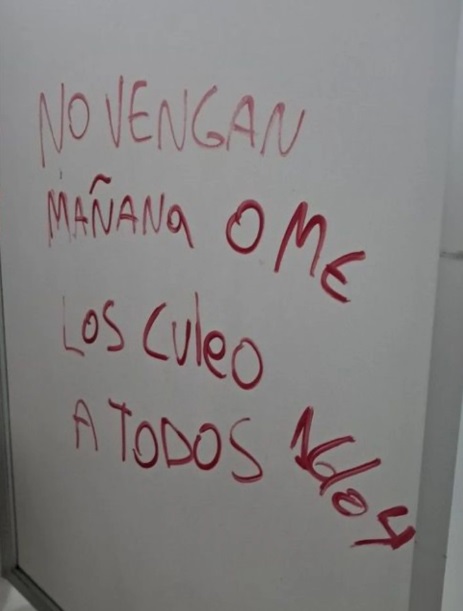 NO VENGAN
MAÑANA O ME
LOS CULEO
A TODOS